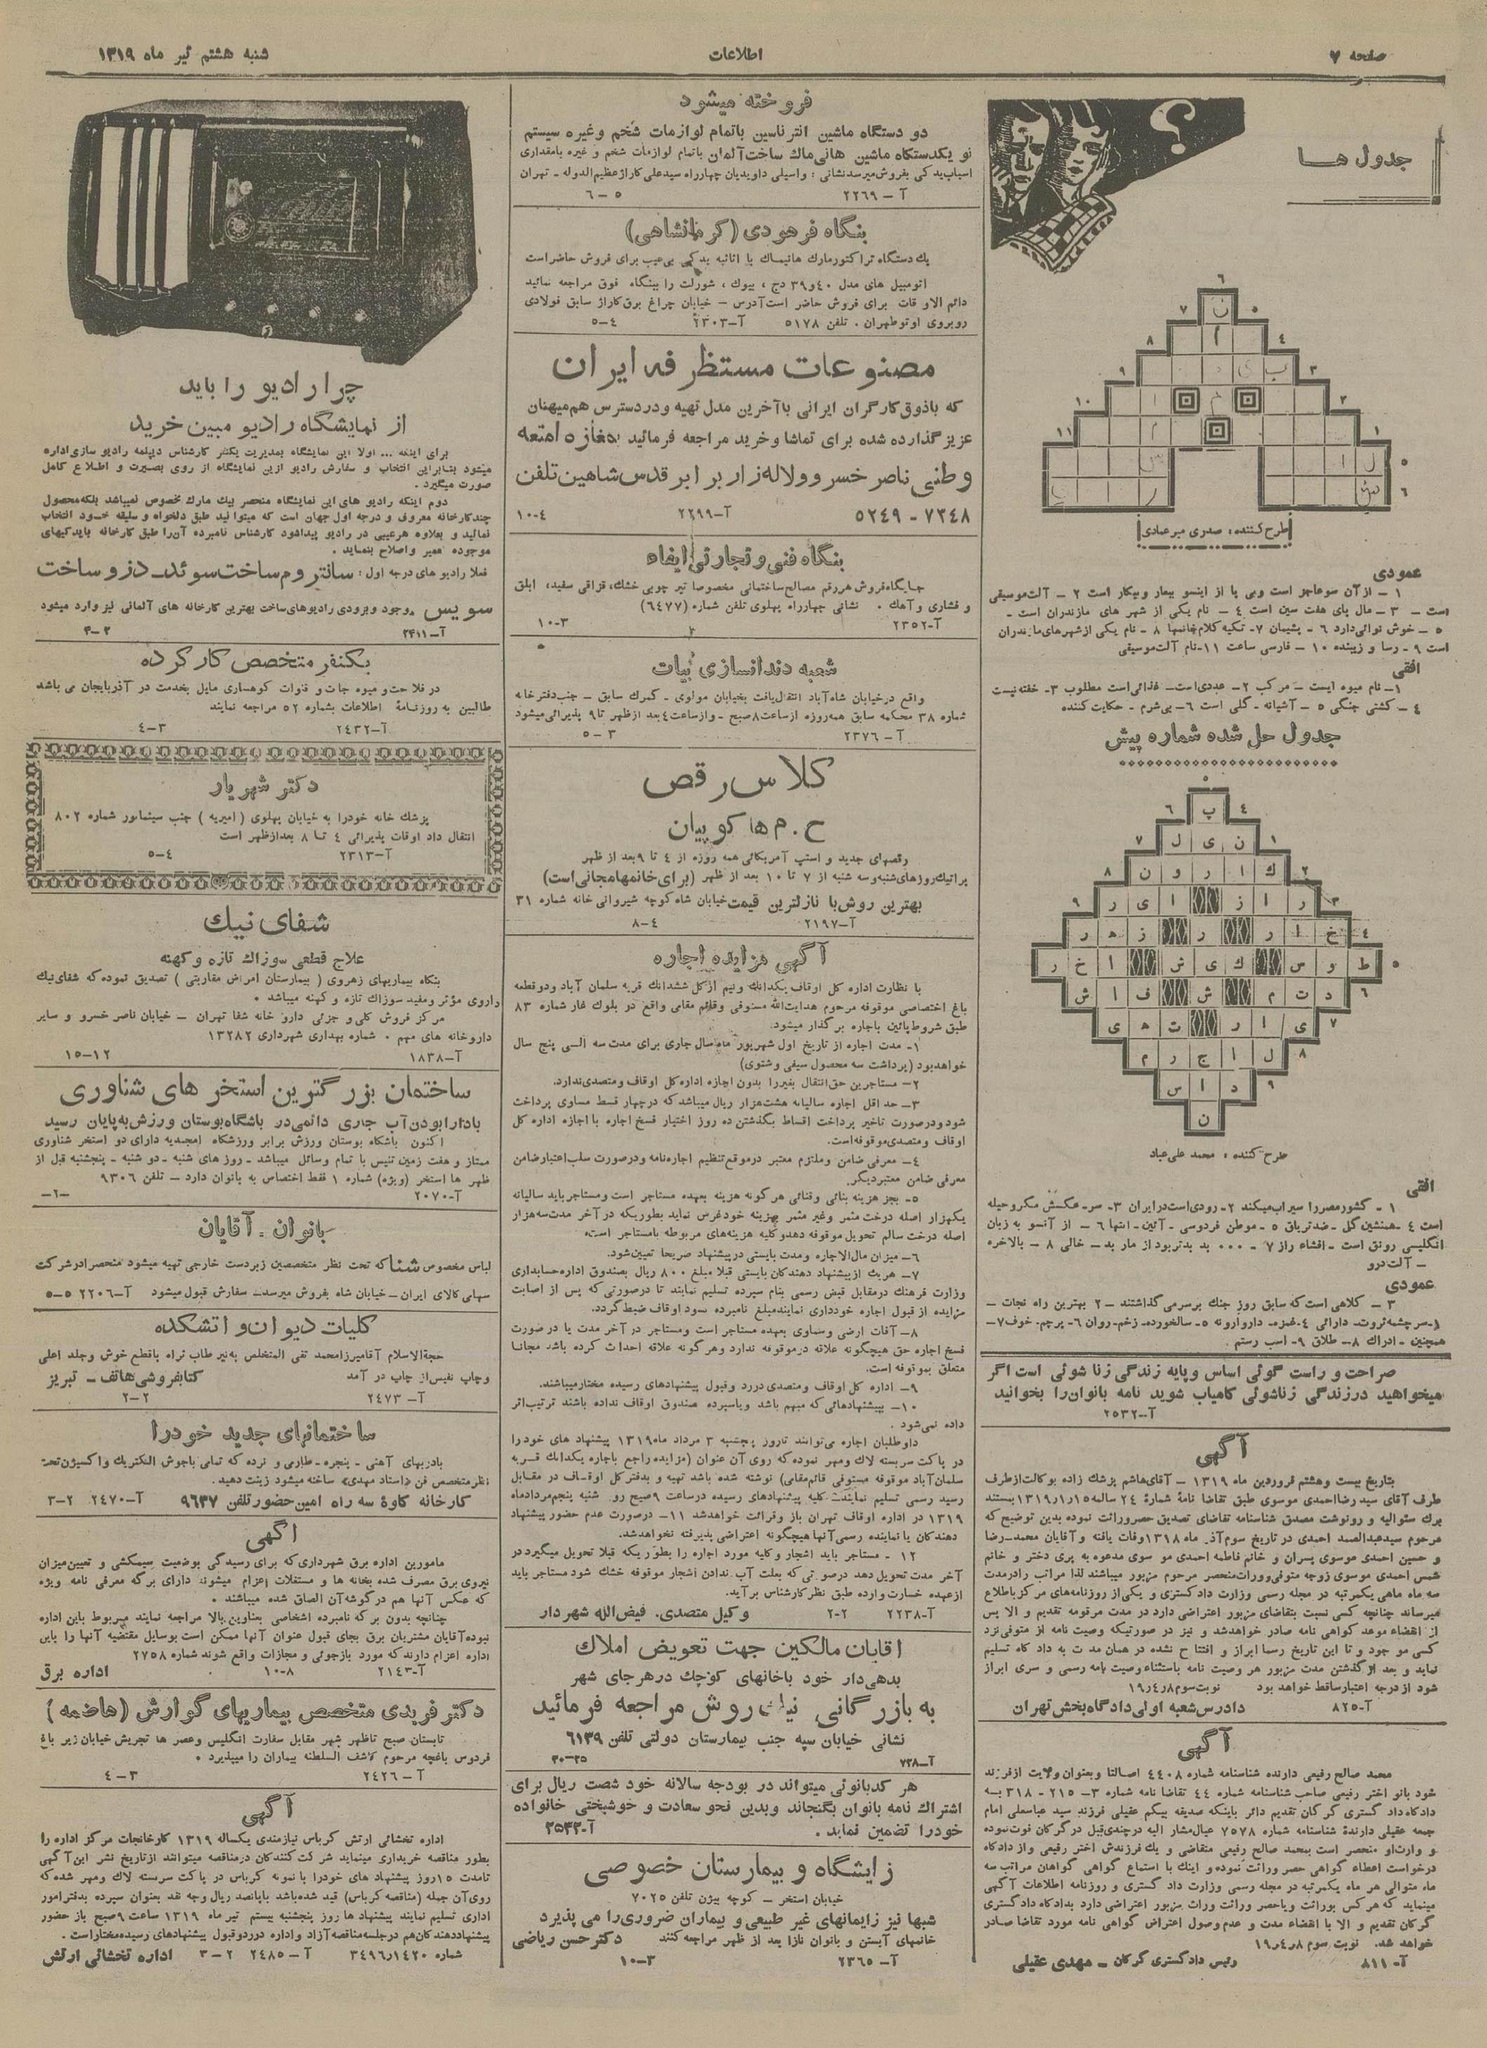 صفحه ۷
اطلاعات
شنبه هشتم تیر ماه ۱۳۱۹
جدول ها
طرح کننده : صدری میرعمادی
عمودی
۱ - از آن سو عاجز است ومی پا از اینسو بیمار وبیکار است ۲ - آلت‌موسیقی
است - ۳ - مال پای هفت سین است ٤ - نام یکی از شهر های مازندران است -
۵ - خوش نوائی‌دارد ۶ - پشیمان ۷- تکیه کلام خانمها ۸ - نام یکی ازشهرهای‌مازندران
است ۹ - رسا و زیبنده ۱۰ - فارسی ساعت ۱۱-نام آلت‌موسیقی
افقی
۱- نام میوه ایست - مرکب ۲- عددی‌است- غذائی‌است مطلوب ۳- خفته‌نیست
٤ - کشتی جنگی ۵ - آشیانه - گلی است ۶- بی‌شرم - حکایت کننده
جدول حل شده شماره پیش
طرح کننده : محمد علی‌عباد
افقی
۱ - کشورمصررا سیراب‌میکند ۲- رودی‌است‌درایران ۳- سر- عکسش مکروحیله
است ٤ - همنشین گل - ضدتریاق ۵ - موطن فردوسی - آئین - انتها ۶ - از آنسو به زبان
انگلیسی رونق است - افشاء راز ۷ - ۰۰۰ بد بدتربود از مار بد - خالی ۸ - بالاخره
- آلت‌درو
عمودی
۳ - کلاهی است که سابق روز جنك برسرمی گذاشتند - ۲ بهترین راه نجات -
۱-سرچشمه‌ثروت- دارائی ٤-غمزه- داروارونه ۵- سالخورده- زخم-روان ۶- پرچم- خوف۷-
همچنین - ادراك ۸- طلاق ۹- اسب رستم .
صراحت و راست گوئی اساس وپایه زندگی زنا شوئی است اگر
میخواهید درزندگی زناشوئی کامیاب شوید نامه بانوان‌را بخوانید
آ-۲۵۳۲
آگهی
بتاریخ بیست وهشتم فروردین ماه ۱۳۱۹ - آقای‌هاشم پزشك زاده بوکالت‌ازطرف
طرف آقای سید رضااحمدی موسوی طبق تقاضا نامهٔ شمارهٔ ۲٤ سالمه۱۵ر۱ر۱۳۱۹بپیوستند
برك سئوالیه و رونوشت مصدق شناسنامه تقاضای تصدیق حصروراثت نموده بدین توضیح که
مرحوم سیدعبدالصمد احمدی در تاریخ سوم‌آذر ماه ۱۳۱۸وفات یافته وآقایان محمد-رضا
و حسین احمدی موسوی پسران و خانم فاطمه احمدی مو سوی مدعوه به پری دختر و خانم
شمس احمدی موسوی زوجه متوفی‌ووراث‌منحصر مرحوم مزبور میباشند لذا مراتب رادرمدت
سه ماه ماهی یکمرتبه در مجله رسمی وزارت داد گستری و یکی‌از روزنامه‌های مرکزباطلاع
میرساند چنانچه کسی نسبت بتقاضای مزبور اعتراضی دارد در مدت مرقومه تقدیم و الا پس
از انقضاء موعد گواهی نامه صادر خواهدشد و نیز در صورتیکه وصیت نامه از متوفی‌نزد
کسی مو جود و تا این تاریخ رسما ابراز و افتتا ح نشده در همان مد ت به داد گاه تسلیم
نماید و بعد از گذشتن مدت مزبور هر وصیت نامه باستثناء وصیت نامه رسمی و سری ابراز
شود از درجه اعتبارساقط خواهد بود نوبت‌سوم۱۹ر٤ر۸
آ-۸۲۵ دادرس‌شعبه اولی‌دادگاه‌بخش‌تهران
آگهی
محمد صالح رفیعی دارنده شناسنامه شماره ٤٤۰۸ اصالتا وبعنوان ولایت ازفرزند
خود بانو اختر رفیعی صاحب شناسنامه شماره ٤٤ تقاضا نامه شماره ۳- ۲۱۵ - ۳۱۸ بـه
دادگاه‌داد گستری گرگان تقدیم دائر باینکه صدیقه بیگم عقیلی فرزند سید عباسعلی امام
جمعه عقیلی دارندهٔ شناسنامه شماره ۷۵۷۸ عیال‌مشار الیه درچندی‌قبل درگرگان فوت‌نموده
و وارث‌او منحصر است بمحمد صالح رفیعی متقاضی و یك فرزندش اختر رفیعی واز دادگاه
درخواست اعطاء گواهی حصر وراثت نموده و اینك با استماع گواهی گواهان مراتب سه
ماه متوالی هر ماه یکمرتبه در مجله رسمی وزارت داد گستری و روزنامه اطلاعات آگهی
مینماید که هرکس بوراثت ویاحصر وراثت وراث مزبور اعتراضی دارد بدادگاه دادگستری
گرگان تقدیم و الا با انقضاء مدت و عدم وصول اعتراض گواهی نامه مورد تقاضا صادر
خواهد شد. نوبت سوم ۸ر٤ر۱۹
آ- ۸۱۱ رئیس دادگستری گرگان - مهدی عقیلی
فروخته میشود
دو دستگاه ماشین انتر ناسین باتمام لوازمات شخم وغیره سیستم
نو یکدستگاه ماشین هانی‌ماك ساخت‌آلمان باتمام لوازمات شخم و غیره بامقداری
اسباب‌یدکی بفروش‌میرسدنشانی : واسیلی داویدیان چهارراه سیدعلی کاراژعظیم‌الدوله - تهران
آ - ۲۲۶۹ ۵ - ۶
بنگاه فرهودی (کرمانشاهی)
یك دستگاه تراکتورمارك هانیماك با اثاثیه یدکی بی‌عیب برای فروش حاضراست
اتومبیل های مدل ٤۰و۳۹ دج ، بیوك ، شورلت را ببنگاه فوق مراجعه نمائید
دائم الاو قات برای فروش حاضر است‌آدرس - خیابان چراغ برق‌کاراژ سابق فولادی
روبروی اوتوطهران . تلفن ۵۱۷۸ آ-۲۳۰۳ ٤-۵
مصنوعات مستظرفه ایران
که باذوق کارگران ایرانی باآخرین مدل تهیه ودردسترس هم‌میهنان
عزیزگذارده شده برای تماشا وخرید مراجعه فرمائید بمغازه امتعه
وطنی ناصر خسرو ولاله‌زار برابر قدس‌شاهین‌تلفن
۷۲٤۸ - ۵۲٤۹ آ-۲۲۹۹ ٤-۱۰
بنگاه فنی و تجارتی ایفاء
جایگاه‌فروش هرقم مصالح‌ساختمانی مخصوصا تیر چوبی خشك، قزاقی سفید، ابلق
و فشاری و آهك . نشانی چهارراه پهلوی تلفن شماره (۶٤۷۷)
آ-۲۳۵۲ ۳-۱۰
شعبه دندانسازی بیات
واقع درخیابان شاه‌آباد انتقال‌یافت بخیابان مولوی - گمرك سابق - جنب‌دفتر خانه
شماره ۳۸ محکمه سابق همه‌روزه ازساعت۸صبح - وازساعت٤ بعد ازظهر تا۹ پذیرائی‌میشود
آ - ۲۳۷۶ ۳ - ۵
کلاس رقص
ح . م هاکوپیان
رقصهای جدید و استپ آمریکائی همه روزه از ٤ تا ۹ بعد از ظهر
پراتیك‌روزهای‌شنبه‌وسه شنبه از ۷ تا ۱۰ بعد از ظهر (برای‌خانمهامجانی‌است)
بهترین روش‌با نازلترین قیمت‌خیابان شاه کوچه شیروانی خانه شماره ۳۱
آ-۲۱۹۷ ٤-۸
آگهی مزایده اجاره
با نظارت اداره کل اوقاف یکدانك ونیم ازکل ششدانك قریه سلمان آباد ودوقطعه
باغ اختصاصی موقوفه مرحوم هدایت‌الله مستوفی وقائم مقامی واقع در بلوك غار شماره ۸۳
طبق شروط‌پائین باجاره برگذار میشود.
۱- مدت اجاره از تاریخ اول شهریور ماه سال جاری برای مدت سه الـی پنج سال
خواهدبود (پرداشت سه محصول سیفی و شتوی)
۲- مستاجرین حق‌انتقال بغیررا بدون اجازه اداره‌کل اوقاف ومتصدی‌ندارد.
۳- حد اقل اجاره سالیانه هشت‌هزار ریال میباشد که درچهار قسط مساوی پرداخت
شود ودرصورت تاخیر پرداخت اقساط بگذشتن ده روز اختیار فسخ اجاره با اجازه اداره کل
اوقاف ومتصدی‌موقوفه‌است.
٤- معرفی ضامن وملتزم معتبر درموقع‌تنظیم اجاره‌نامه ودرصورت سلب‌اعتبارضامن
معرفی ضامن معتبردیگر.
۵- بجز هزینه بنائی وقنائی هرگونه هزینه بعهده مستاجر است ومستاجرباید سالیانه
یکهزار اصله درخت مثمر وغیر مثمر بهزینه خودغرس نماید بطوریکه درآخر مدت‌سه‌هزار
اصله درخت سالم تحویل موقوفه دهدوکلیه هزینه‌های مربوطه بامستاجر است.
۶- میزان مال‌الاجاره ومدت بایستی درپیشنهاد صریحا تعیین‌شود.
۷- هریك ازپیشنهاد دهندگان بایستی قبلا مبلغ ۸۰۰ ریال بصندوق اداره‌حسابداری
وزارت فرهنك درمقابل قبض رسمی بنام سپرده تسلیم نمایند تا درصورتی‌که پس از اصابت
مزایده از قبول اجاره خودداری نمایندمبلغ نامبرده بسود اوقاف ضبط‌گردد.
۸- آفات ارضی وسماوی بعهده مستاجر است ومستاجر در آخر مدت یا در صورت
فسخ اجاره حق هیچگونه علاقه درموقوفه ندارد وهرگونه علاقه احداث کرده باشد مجانا
متعلق بموقوفه است.
۹- اداره کل اوقاف ومتصدی دررد وقبول پیشنهادهای رسیده مختارمیباشند.
۱۰- پیشنهادهائی‌که مبهم باشد وباسپرده صندوق اوقاف نداده باشند ترتیب‌اثر
داده نمی‌شود .
داوطلبان اجاره می‌توانند تاروز پنجشنبه ۳ مرداد ماه۱۳۱۹ پیشنهاد های خود را
در پاکت سربسته لاك ومهر نموده که روی آن عنوان (مزایده‌راجع باجاره یکدانك قـریه
سلمان‌آباد موقوفه مستوفی قائم‌مقامی) نوشته شده باشد تهیه و بدفترکل اوقـاف در مقـابل
رسید رسمی تسلیم نمایندت کلیه پیشنهادهای رسیده درساعت ۹صبح رو ز شنبه پنجم‌مردادماه
۱۳۱۹ در اداره اوقاف تهران باز وقرائت خواهدشد ۱۱- درصورت عدم حضور پیشنهاد
دهندگان یا نماینده رسمی‌آنها هیچگونه اعتراضی پذیرفته نخواهدشد.
۱۲ - مستاجر باید اشجار وکلیه مورد اجاره را بطوریکه قبلا تحویل میگیرد در
آخر مدت تحویل دهد درصورتی که بعلت آب ندادن اشجار موقوفه خشك شود مستاجر باید
ازعهده خسارت وارده طبق نظرکارشناس برآید.
آ-۲۲۳۸ ۲-۲ وکیل متصدی. فیض‌الله شهردار
آقایان مالکین جهت تعویض املاك
بدهی‌دار خود باخانهای کوچك درهرجای شهر
به بازرگانی نیك روش مراجعه فرمائید
نشانی خیابان سپه جنب بیمارستان دولتی تلفن ۶۱۳۹
آ-۷۲۸ ۲۵-۳۰
هر کدبانوئی میتواند در بودجه سالانه خود شصت ریال برای
اشتراك نامه بانوان بگنجاند وبدین نحو سعادت و خوشبختی خانواده
خودرا تضمین نماید . آ-۲۵۳۲
زایشگاه و بیمارستان خصوصی
خیابان استخر - کوچه بیژن تلفن ۷۰۲۵
شبها نیز زایمانهای غیر طبیعی و بیماران ضروری‌را می پذیرد
خانمهای آبستن و بانوان نازا بعد از ظهر مراجعه‌کنند دکترحسن ریاضی
آ- ۲۳۶۵ ۳-۱۰
چرا رادیو را باید
از نمایشگاه رادیو مبین خرید
برای اینکه ... اولا این نمایشگاه بمدیریت یکنفر کارشناس دیپلمه رادیو سازی‌اداره
میشود بنابراین انتخاب و سفارش رادیو ازین نمایشگاه از روی بصیرت و اطلاع کامل
صورت میگیرد .
دوم اینکه رادیو های این نمایشگاه منحصر بیك مارك مخصوص نمیباشد بلکه‌محصول
چندکارخانه معروف و درجه اول جهان است که میتوانید طبق دلخواه و سلیقه خود انتخاب
نمائید و بعلاوه هرعیبی در رادیو پیداشود کارشناس نامبرده آن‌را طبق کارخانه بایدکیهای
موجوده تعمیر واصلاح بنماید .
فعلا رادیو های درجه اول : سانتروم‌ساخت‌سوئد- دزوساخت
سویس موجود وبزودی رادیوهای‌ساخت بهترین کارخانه های آلمانی نیز وارد میشود
آ-۲٤۱۱ ۲-۴
یکنفر متخصص کارکرده
در فلاحت و میوه جات و قنوات کوهساری مایل بخدمت در آذربایجان می باشد
طالبین به روزنـامهٔ اطلاعات بشماره ۵۲ مراجعه نمایند
آ-۲٤۳۲ ۳-٤
دکتر شهریار
پزشك خانه خودرا به خیابان پهلوی ( امیریه ) جنب سینماتور شماره ۸۰۲
انتقال داد اوقات پذیرائی ٤ تا ۸ بعدازظهر است
آ-۲۳۱۳ ٤-۵
شفای نیك
علاج قطعی سوزاك تازه و کهنه
بنگاه بیماریهای زهروی ( بیمارستان امراض مقاربتی ) تصدیق نموده که شفای‌نیك
داروی مؤثر ومفید سوزاك تازه و کهنه میباشد .
مرکز فروش کلی و جزئی دارو خانه شفا تهران - خیابان ناصر خسرو و سایر
داروخانه های مهم . شماره بهداری شهرداری ۱۳۲۸۲
آ-۱۸۳۸ ۱۲-۱۵
ساختمان بزرگترین استخر های شناوری
بادارا بودن‌آب جاری دائمی‌در باشگاه‌بوستان ورزش‌به‌پایان رسید
اکنون باشگاه بوستان ورزش برابر ورزشگاه امجدیه دارای دو استخر شناوری
ممتاز و هفت زمین تنیس با تمام وسائل میباشد - روز های شنبه - دو شنبه - پنجشنبه قبل از
ظهر ها استخر (ویژه) شماره ۱ فقط اختصاص به بانوان دارد - تلفن ۹۳۰۶
آ-۲۰۷۰
بانوان . آقایان
لباس مخصوص شنا که تحت نظر متخصصین زبردست خارجی تهیه میشود منحصرادرشرکت
سهامی کالای ایران - خیابان شاه بفروش میرسد- سفارش قبول میشود آ-۲۲۰۶ ۵-۵
کلیات دیوان و آتشکده
حجةالاسلام آقامیرزامحمد تقی المتخلص به‌نیر طاب ثراه باقطع خوش وجلد اعلی
وچاپ نفیس‌از چاپ در آمد کتابفروشی‌هاتف - تبریز
آ- ۲٤۷۳ ۲-۲
ساختمانهای جدید خودرا
بادربهای آهنی - پنجره - طارمی و نرده که تمامی باجوش الکتریك واکسیژن‌تحت
نظرمتخصص فن (استاد مهدی» ساخته میشود زینت دهید.
کارخانه کاوهٔ سه راه امین‌حضورتلفن ۹۶۳۷ آ-۲٤۷۰ ۲-۳
آگهی
مامورین اداره برق شهرداری‌که برای رسیدگی بوضعیت سیمکشی و تعیین‌میزان
نیروی برق مصرف شده بخانه ها و مستغلات اعزام میشوند دارای برگه معرفی نامه ویژه
که عکس آنها هم درگوشه‌آن الصاق شده میباشند .
چنانچه بدون برگه نامبرده اشخاصی بعناوین بالا مراجعه نمایند مربوط باین اداره
نبوده‌آقایان مشتریان برق بجای قبول عنوان آنها ممکن است بوسایل مقتضیه آنها را باین
اداره اعزام دارندکه مورد بازجوئی و مجازات واقع شوند شماره ۲۷۵۸
آ-۲۱٤۳ ۸-۱۰ اداره برق
دکتر فریدی متخصص بیماریهای گوارش (هاضمه)
تابستان صبح تاظهر شهر مقابل سفارت انگلیس وعصر ها تجریش خیابان زیر باغ
فردوس باغچه مرحوم کاشف السلطنه بیماران را میپذیرد .
آ - ۲٤۲۶ ۳-٤
آگهی
اداره تخشائی ارتش کرباس نیازمندی یکساله ۱۳۱۹ کارخانجات مرکز اداره را
بطور مناقصه خریداری مینماید شرکت‌کنندگان درمناقصه میتوانند ازتاریخ نشر این‌آگهی
تامدت ۱۵روز پیشنهاد های خودرا با نمونه کرباس در پاکت سربسته لاك ومهر شده‌که
روی‌آن جمله (مناقصه کرباس) قید شده‌باشد باپانصد ریال وجه نقد بعنوان سپرده بدفترامور
اداری تسلیم نمایند پیشنهاد ها روز پنجشنبه بیستم تیر ماه ۱۳۱۹ ساعت ۹صبح باز حضور
پیشنهاددهندگان‌هم درجلسه‌مناقصه‌آزاد واداره دررد وقبول پیشنهادهای رسیده‌مختاراست.
شماره ۱٤۲۰ر۳٤۹۶ آ- ۲٤۸۵ ۲-۳ اداره تخشائی ارتش